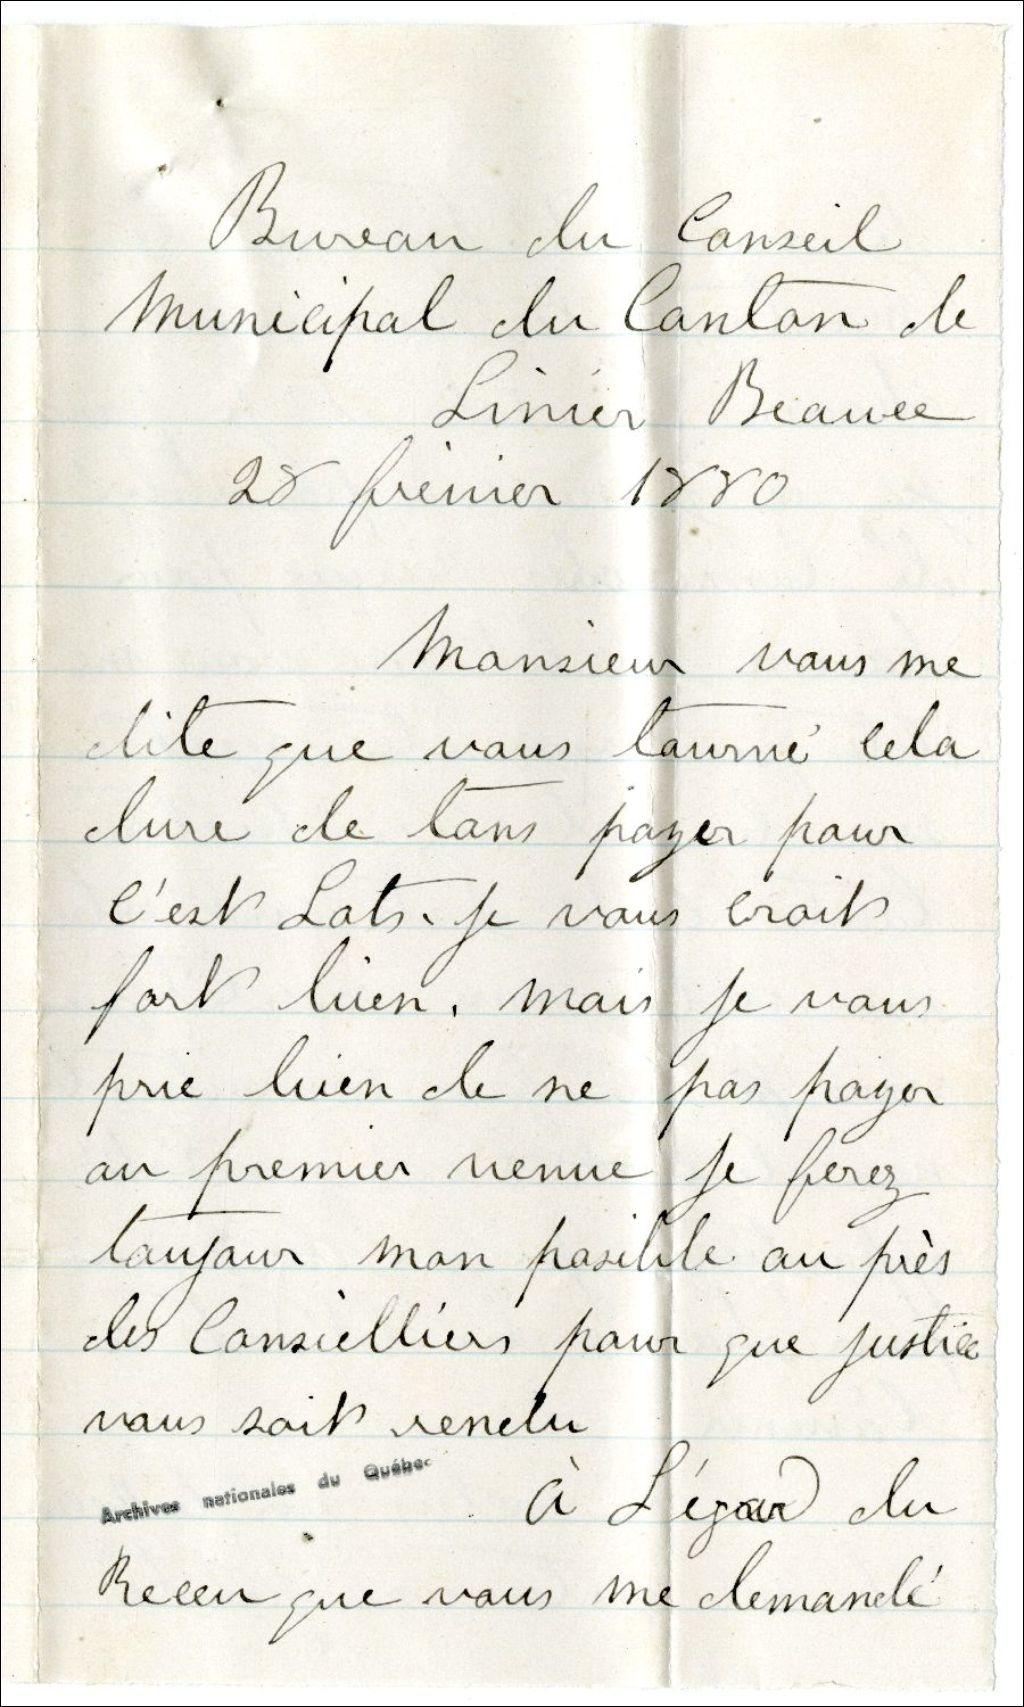 Bureau du Conseil
Municipal du Canton de
Linier Beauce
28 février 1880
Monsieur vous me
dite que vous tourné cela
dure de tans payer pour
c'est Lots. je vous croit
fort bien. mais je vous
prie bien de ne pas payer
au premier venue je ferez
toujour mon posible au près
des Consielliers pour que justice
vous soit rendu
Archives nationales du Québec
à L'égard du
Receu que vous me demandé